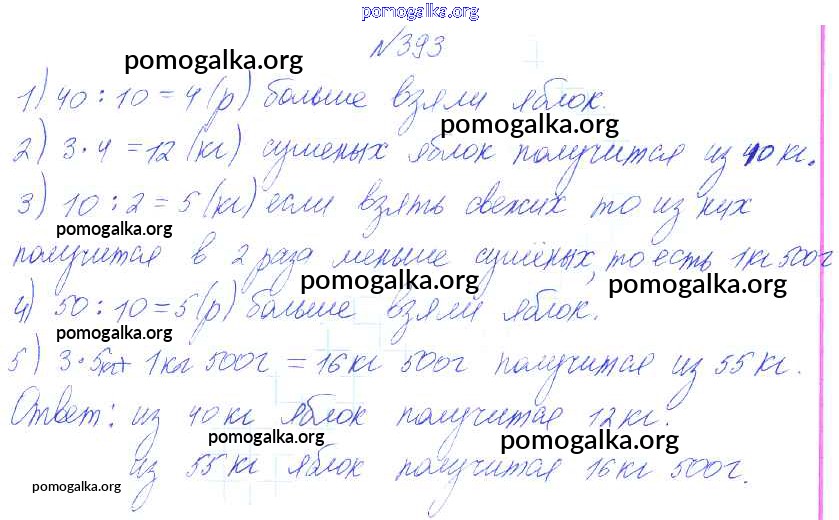 pomogalka.org
№393
pomogalka.org
1) 40 : 10 = 4 (р) больше взяли яблок.
pomogalka.org
2) 3 · 4 = 12 (кг) сушеных яблок получится из 40 кг.
3) 10 : 2 = 5 (кг) если взять свежих то из них
pomogalka.org
получится в 2 раза меньше сушёных, то есть 1кг 500г
pomogalka.org
pomogalka.org
4) 50 : 10 = 5 (р) больше взяли яблок.
pomogalka.org
5) 3 · 5кг + 1кг 500г = 16кг 500г получится из 55 кг.
Ответ: из 40 кг яблок получится 12 кг.
pomogalka.org
pomogalka.org
из 55 кг яблок получится 16 кг 500г.
pomogalka.org